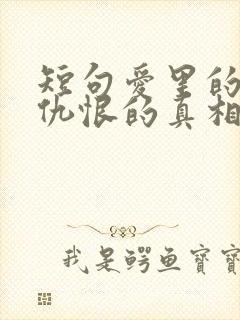 短句爱里的
仇恨的真相
我是鳄鱼宝宝